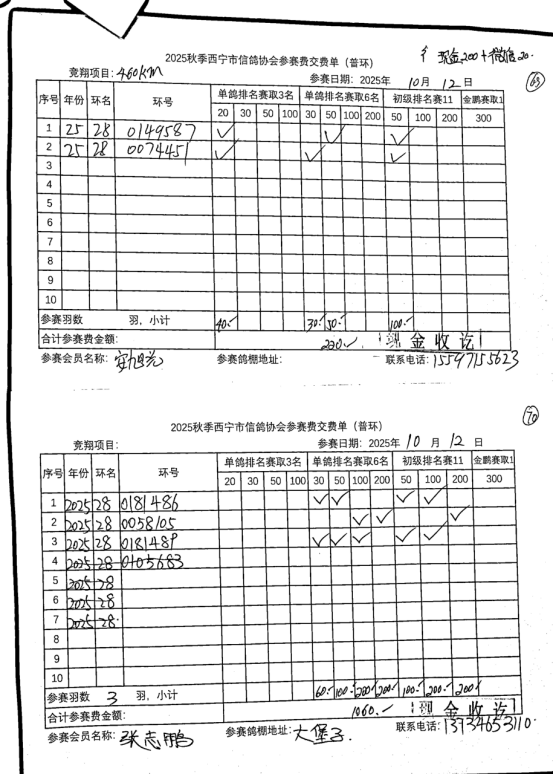 现金200+微信20.
2025秋季西宁市信鸽协会参赛费交费单（普环）
竞翔项目: 460KM 参赛日期: 2025年 10月 12日 69
序号 年份 环名 环号 单鸽排名赛取3名 单鸽排名赛取6名 初级排名赛11 金鹏赛取1
20 30 50 100 30 50 100 200 50 100 200 300
1 25 28 0149587 ✓ ✓ ✓
2 25 28 0074451 ✓ ✓ ✓
3
4
5
6
7
8
9
10
参赛羽数 羽，小计 40.- 30.- 50.- 100.-
合计参赛费金额: 220.- 现金收讫
参赛会员名称: 参赛鸽棚地址: 联系电话: 15597155623
2025秋季西宁市信鸽协会参赛费交费单（普环） 70
竞翔项目: 参赛日期: 2025年 10 月 12 日
序号 年份 环名 环号 单鸽排名赛取3名 单鸽排名赛取6名 初级排名赛11 金鹏赛取1
20 30 50 100 30 50 100 200 50 100 200 300
1 2025 28 0181486 ✓ ✓ ✓ ✓
2 2025 28 0058105 ✓ ✓ ✓
3 2025 28 0181489 ✓ ✓ ✓ ✓ ✓
4 2025 28 0105683
5 2025 28
6 2025 28
7 2025 28
8
9
10
参赛羽数 3 羽，小计 60.- 100.- 200.- 200.- 100.- 200.- 200.-
合计参赛费金额: 1060.- 现金收讫
参赛会员名称: 张志鹏 参赛鸽棚地址: 大堡子. 联系电话: 13734653110